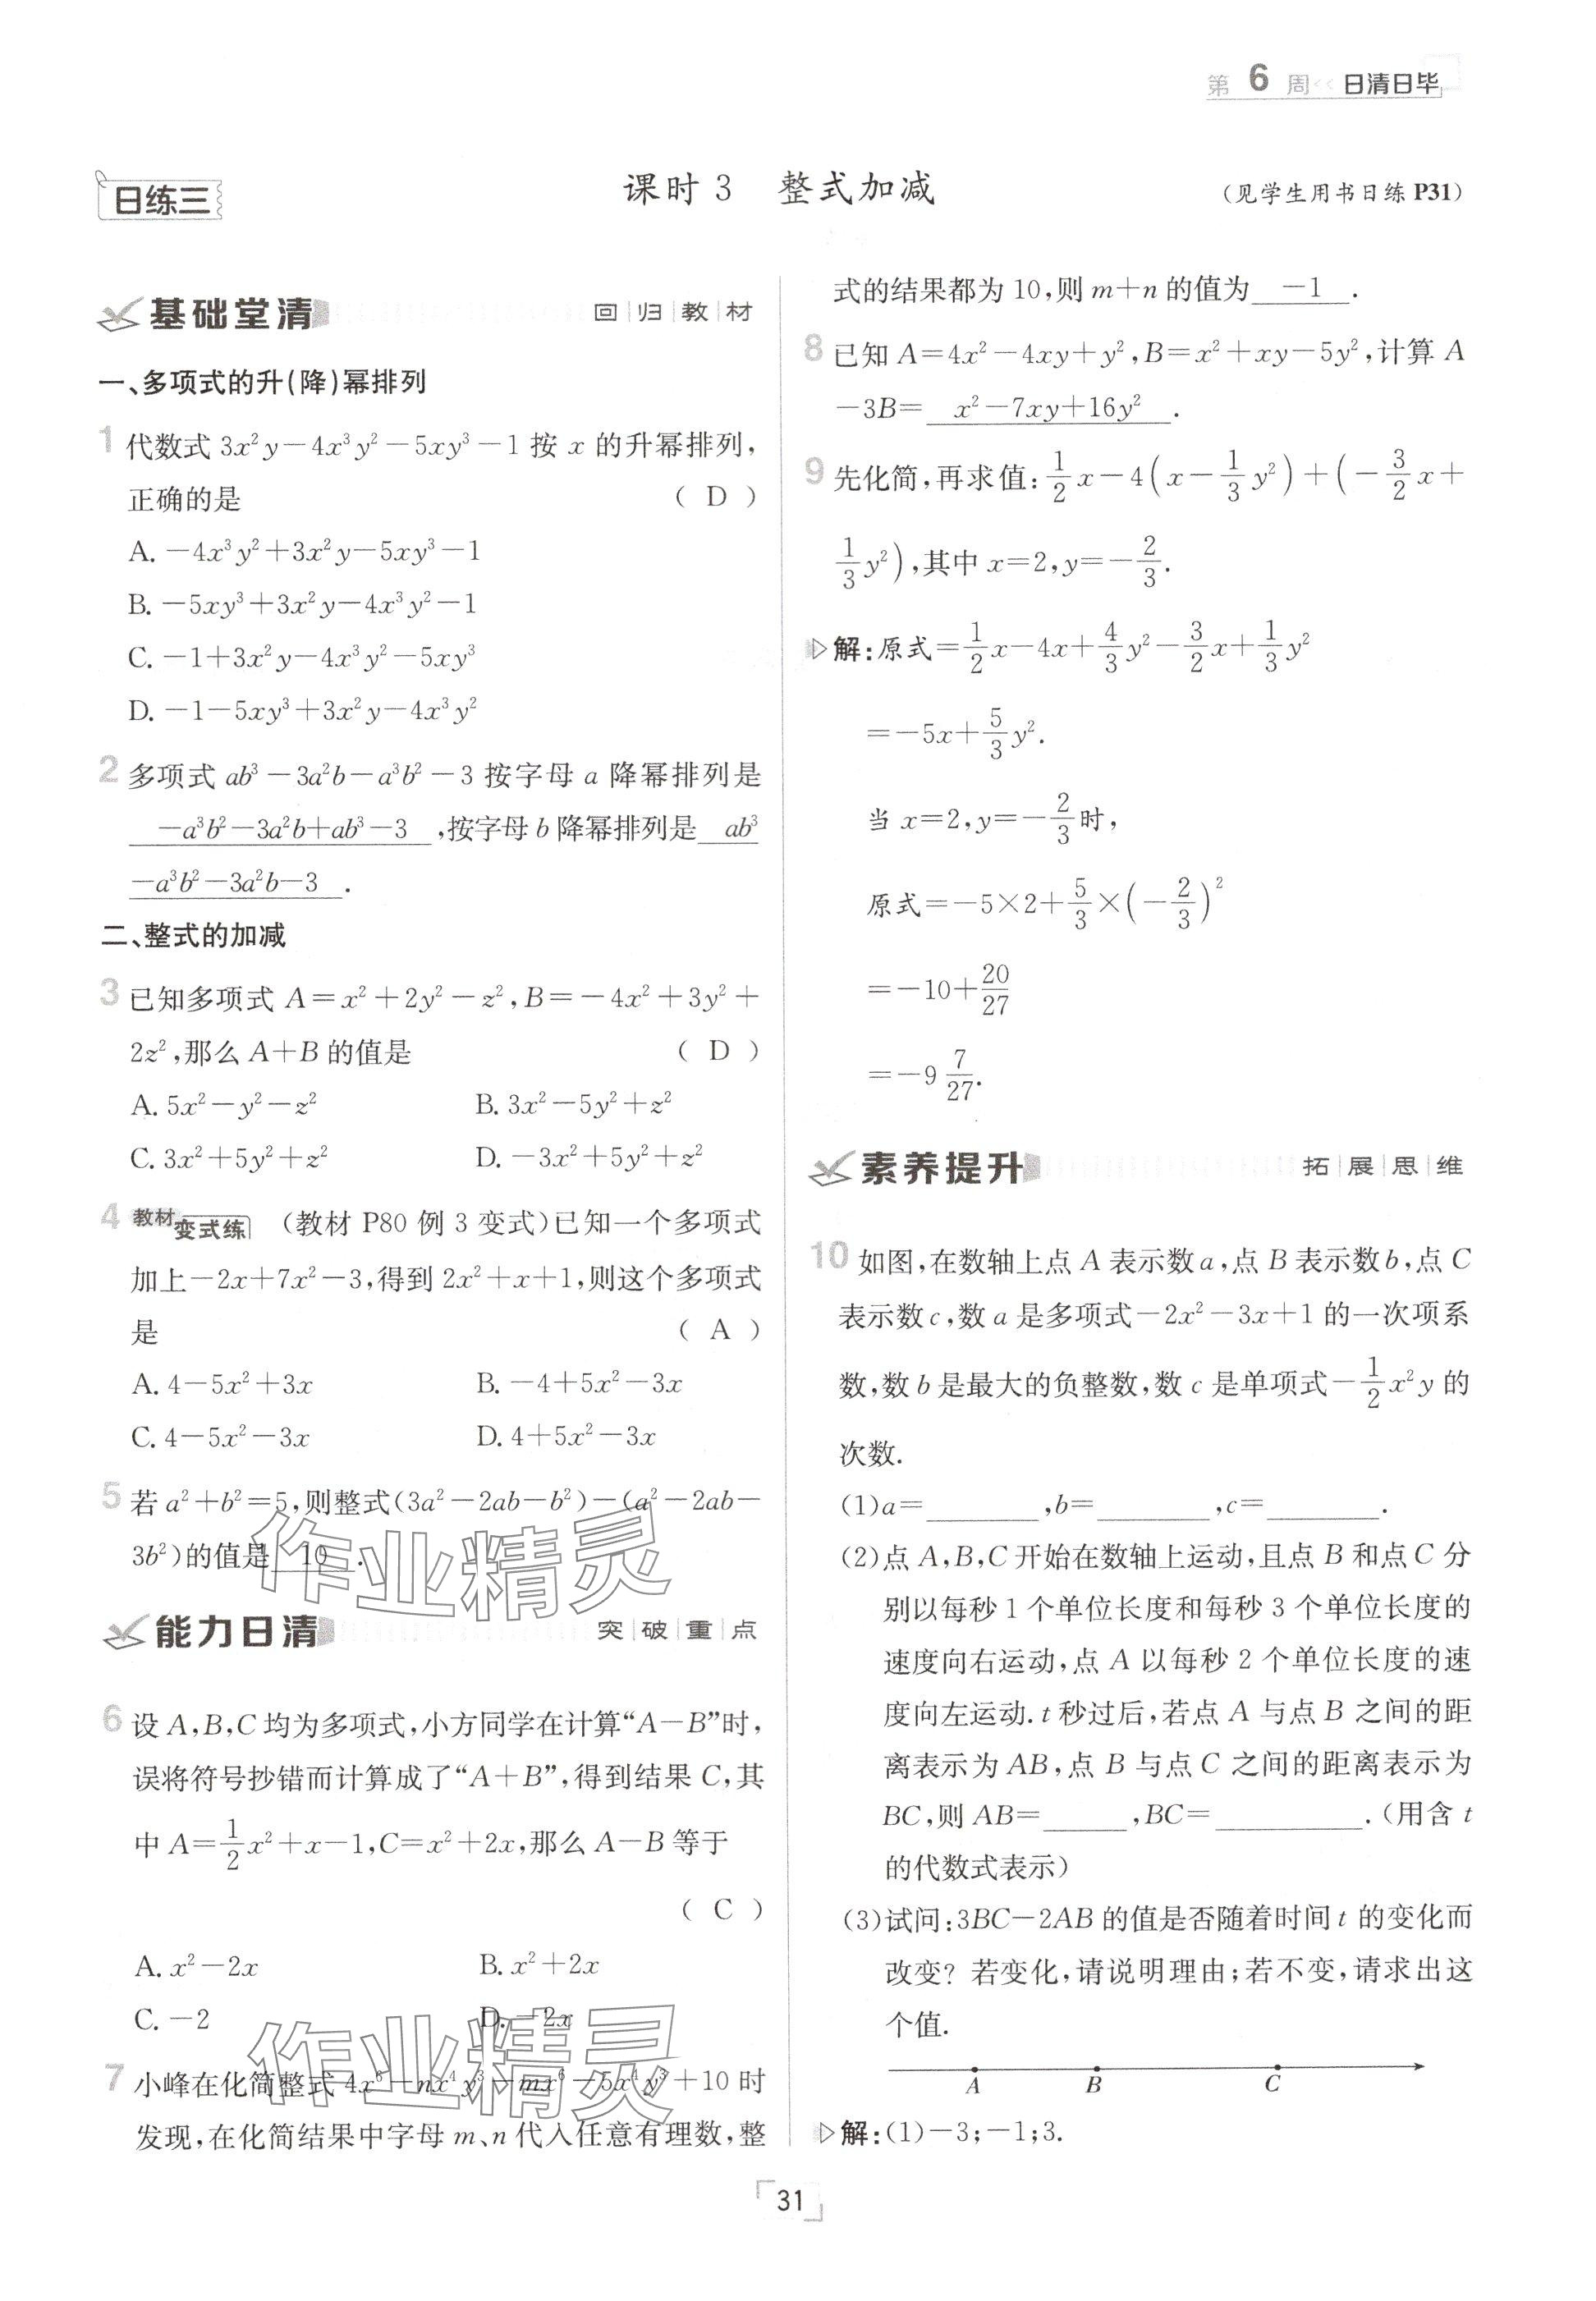 第 6 周<< 日清日毕
日练三
课时 3 整式加减
(见学生用书日练 P31)
基础堂清 回|归|教|材
一、多项式的升(降)幂排列
1 代数式 3x²y－4x³y²－5xy³－1 按 x 的升幂排列,
正确的是 ( D )
A. －4x³y²＋3x²y－5xy³－1
B. －5xy³＋3x²y－4x³y²－1
C. －1＋3x²y－4x³y²－5xy³
D. －1－5xy³＋3x²y－4x³y²
2 多项式 ab³－3a²b－a³b²－3 按字母 a 降幂排列是
－a³b²－3a²b＋ab³－3 ,按字母 b 降幂排列是 ab³
－a³b²－3a²b－3 .
二、整式的加减
3 已知多项式 A＝x²＋2y²－z²,B＝－4x²＋3y²＋
2z²,那么 A＋B 的值是 ( D )
A. 5x²－y²－z² B. 3x²－5y²＋z²
C. 3x²＋5y²＋z² D. －3x²＋5y²＋z²
4 教材变式练 (教材 P80 例 3 变式)已知一个多项式
加上－2x＋7x²－3,得到 2x²＋x＋1,则这个多项式
是 ( A )
A. 4－5x²＋3x B. －4＋5x²－3x
C. 4－5x²－3x D. 4＋5x²－3x
5 若 a²＋b²＝5,则整式(3a²－2ab－b²)－(a²－2ab－
3b²)的值是 10 .
能力日清 突|破|重|点
6 设 A,B,C 均为多项式,小方同学在计算“A－B”时,
误将符号抄错而计算成了“A＋B”,得到结果 C,其
中 A＝1/2 x²＋x－1,C＝x²＋2x,那么 A－B 等于
( C )
A. x²－2x B. x²＋2x
C. －2 D. －2x
7 小峰在化简整式 4x⁶－nx⁴y³－mx⁶－5x⁴y³＋10 时
发现,在化简结果中字母 m、n 代入任意有理数,整
式的结果都为 10,则 m＋n 的值为 －1 .
8 已知 A＝4x²－4xy＋y²,B＝x²＋xy－5y²,计算 A
－3B＝ x²－7xy＋16y² .
9 先化简,再求值: 1/2 x－4(x－1/3 y²)＋(－3/2 x＋
1/3 y²),其中 x＝2,y＝－2/3.
▷解:原式＝1/2 x－4x＋4/3 y²－3/2 x＋1/3 y²
＝－5x＋5/3 y².
当 x＝2,y＝－2/3 时,
原式＝－5×2＋5/3×(－2/3)²
＝－10＋20/27
＝－9 7/27.
素养提升 拓|展|思|维
10 如图,在数轴上点 A 表示数 a,点 B 表示数 b,点 C
表示数 c,数 a 是多项式－2x²－3x＋1 的一次项系
数,数 b 是最大的负整数,数 c 是单项式－1/2 x²y 的
次数.
(1)a＝________,b＝________,c＝________.
(2)点 A,B,C 开始在数轴上运动,且点 B 和点 C 分
别以每秒 1 个单位长度和每秒 3 个单位长度的
速度向右运动,点 A 以每秒 2 个单位长度的速
度向左运动. t 秒过后,若点 A 与点 B 之间的距
离表示为 AB,点 B 与点 C 之间的距离表示为
BC,则 AB＝______,BC＝__________.(用含 t
的代数式表示)
(3)试问:3BC－2AB 的值是否随着时间 t 的变化而
改变? 若变化,请说明理由;若不变,请求出这
个值.
A B C
▷解:(1)－3;－1;3.
31
作业精灵
作业精灵